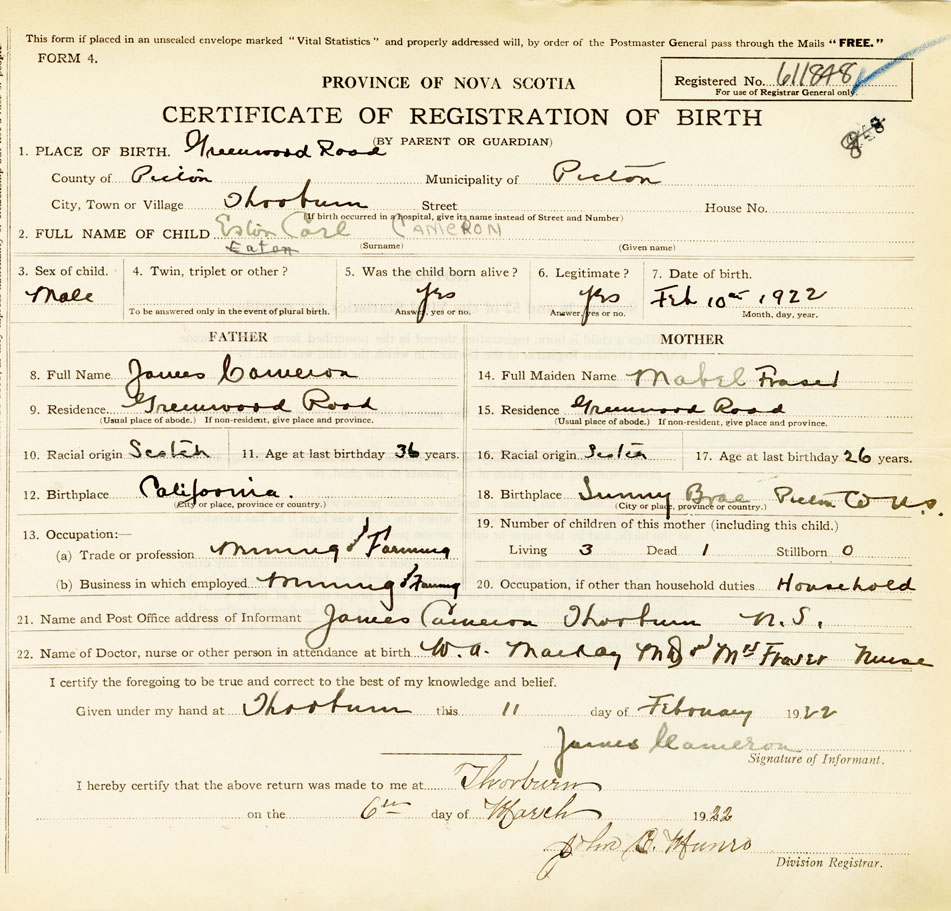 This form if placed in an unsealed envelope marked "Vital Statistics" and properly addressed will, by order of the Postmaster General pass through the Mails "FREE."
FORM 4.
Registered No. 611848
For use of Registrar General only.
PROVINCE OF NOVA SCOTIA
CERTIFICATE OF REGISTRATION OF BIRTH
(BY PARENT OR GUARDIAN)
1. PLACE OF BIRTH. Greenwood Road
County of Picton Municipality of Picton
City, Town or Village Thorburn Street House No.
(If birth occurred in a hospital, give its name instead of Street and Number)
2. FULL NAME OF CHILD Eston Carl CAMERON
Eaton (Surname) (Given name)
3. Sex of child. 4. Twin, triplet or other? 5. Was the child born alive? 6. Legitimate? 7. Date of birth.
Male yes yes Feb 10th 1922
To be answered only in the event of plural birth. Answer, yes or no. Answer, yes or no. Month, day, year.
FATHER MOTHER
8. Full Name James Cameron 14. Full Maiden Name Mabel Fraser
9. Residence Greenwood Road 15. Residence Greenwood Road
(Usual place of abode.) If non-resident, give place and province. (Usual place of abode.) If non-resident, give place and province.
10. Racial origin Scotch 11. Age at last birthday 36 years. 16. Racial origin Scotch 17. Age at last birthday 26 years.
12. Birthplace California. 18. Birthplace Sunny Brae Picton Co N.S.
(City or place, province or country.) (City or place, province or country.)
13. Occupation:— 19. Number of children of this mother (including this child.)
(a) Trade or profession Mining & Farming Living 3 Dead 1 Stillborn 0
(b) Business in which employed Mining & Farming 20. Occupation, if other than household duties Household
21. Name and Post Office address of Informant James Cameron Thorburn N.S.
22. Name of Doctor, nurse or other person in attendance at birth W. A. MacKay MD & Mrs Fraser Nurse
I certify the foregoing to be true and correct to the best of my knowledge and belief.
Given under my hand at Thorburn this 11 day of February 1922
James Cameron
Signature of Informant.
I hereby certify that the above return was made to me at Thorburn
on the 6th day of March 1922
John B. Munro
Division Registrar.